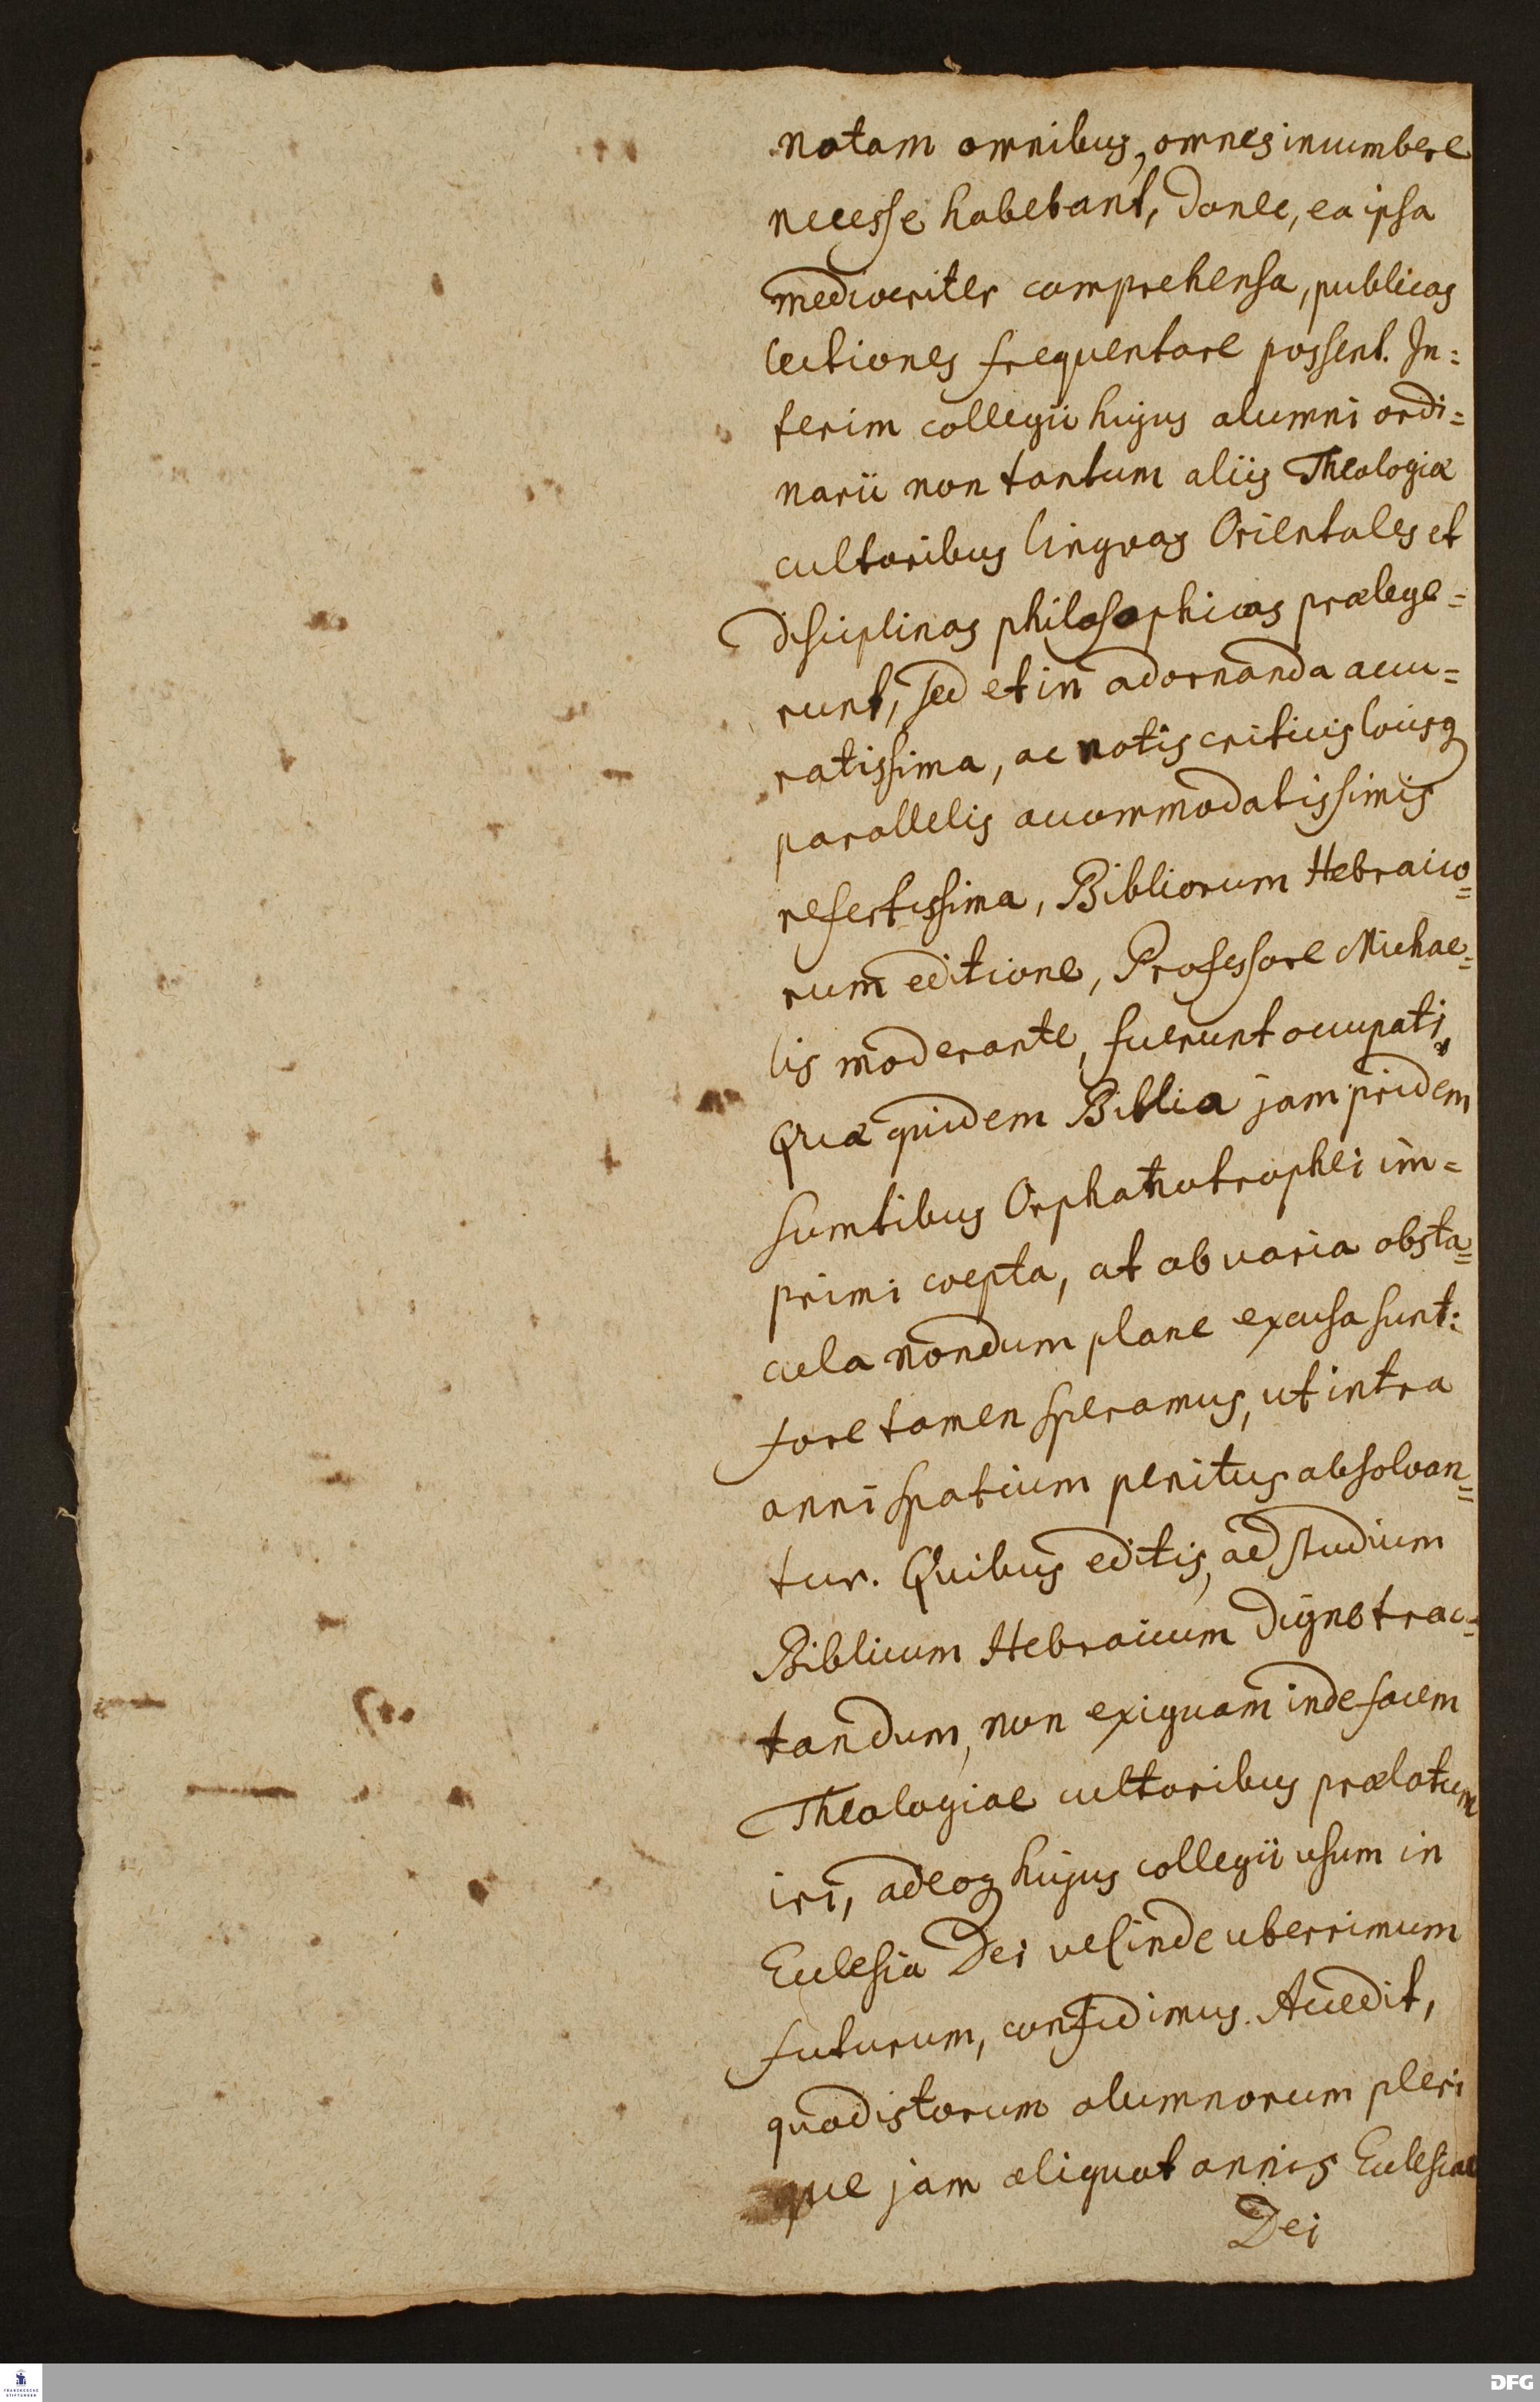 notam omnibus, omnes incumbere
necesse habebant, donec, ea ipsa
mediocriter comprehensa, publicas
lectiones frequentare possent. In=
terim collegii hujus alumni ordi=
narii non tantum aliis Theologiæ
cultoribus linguas Orientales et
disciplinas philosophicas prælege=
runt, sed et in adornanda accu=
ratissima, ac notis criticis locisq
parallelis accommodatissimis
refertissima, Bibliorum Hebraico=
rum editione, Professore Michae=
lis moderante, fuerunt occupati,
Quæ quidem Biblia jam pridem
sumtibus Orphanotrophei im=
primi coepta, at ob varia obsta=
cula nondum plane excusa sunt:
fore tamen speramus, ut intra
anni spatium penitus absolvan=
tur. Quibus editis, ad studium
Biblicum Hebraicum digne trac=
tandum, non exiguam inde facem
Theologiae cultoribus prælatum
iri, adeoq hujus collegii usum in
Ecclesia Dei vel inde uberrimum
futurum, confidimus. Accedit,
quod istorum alumnorum pleri
que jam aliquot annis Ecclesiae
Dei
FRANCKESCHE
STIFTUNGEN
DFG